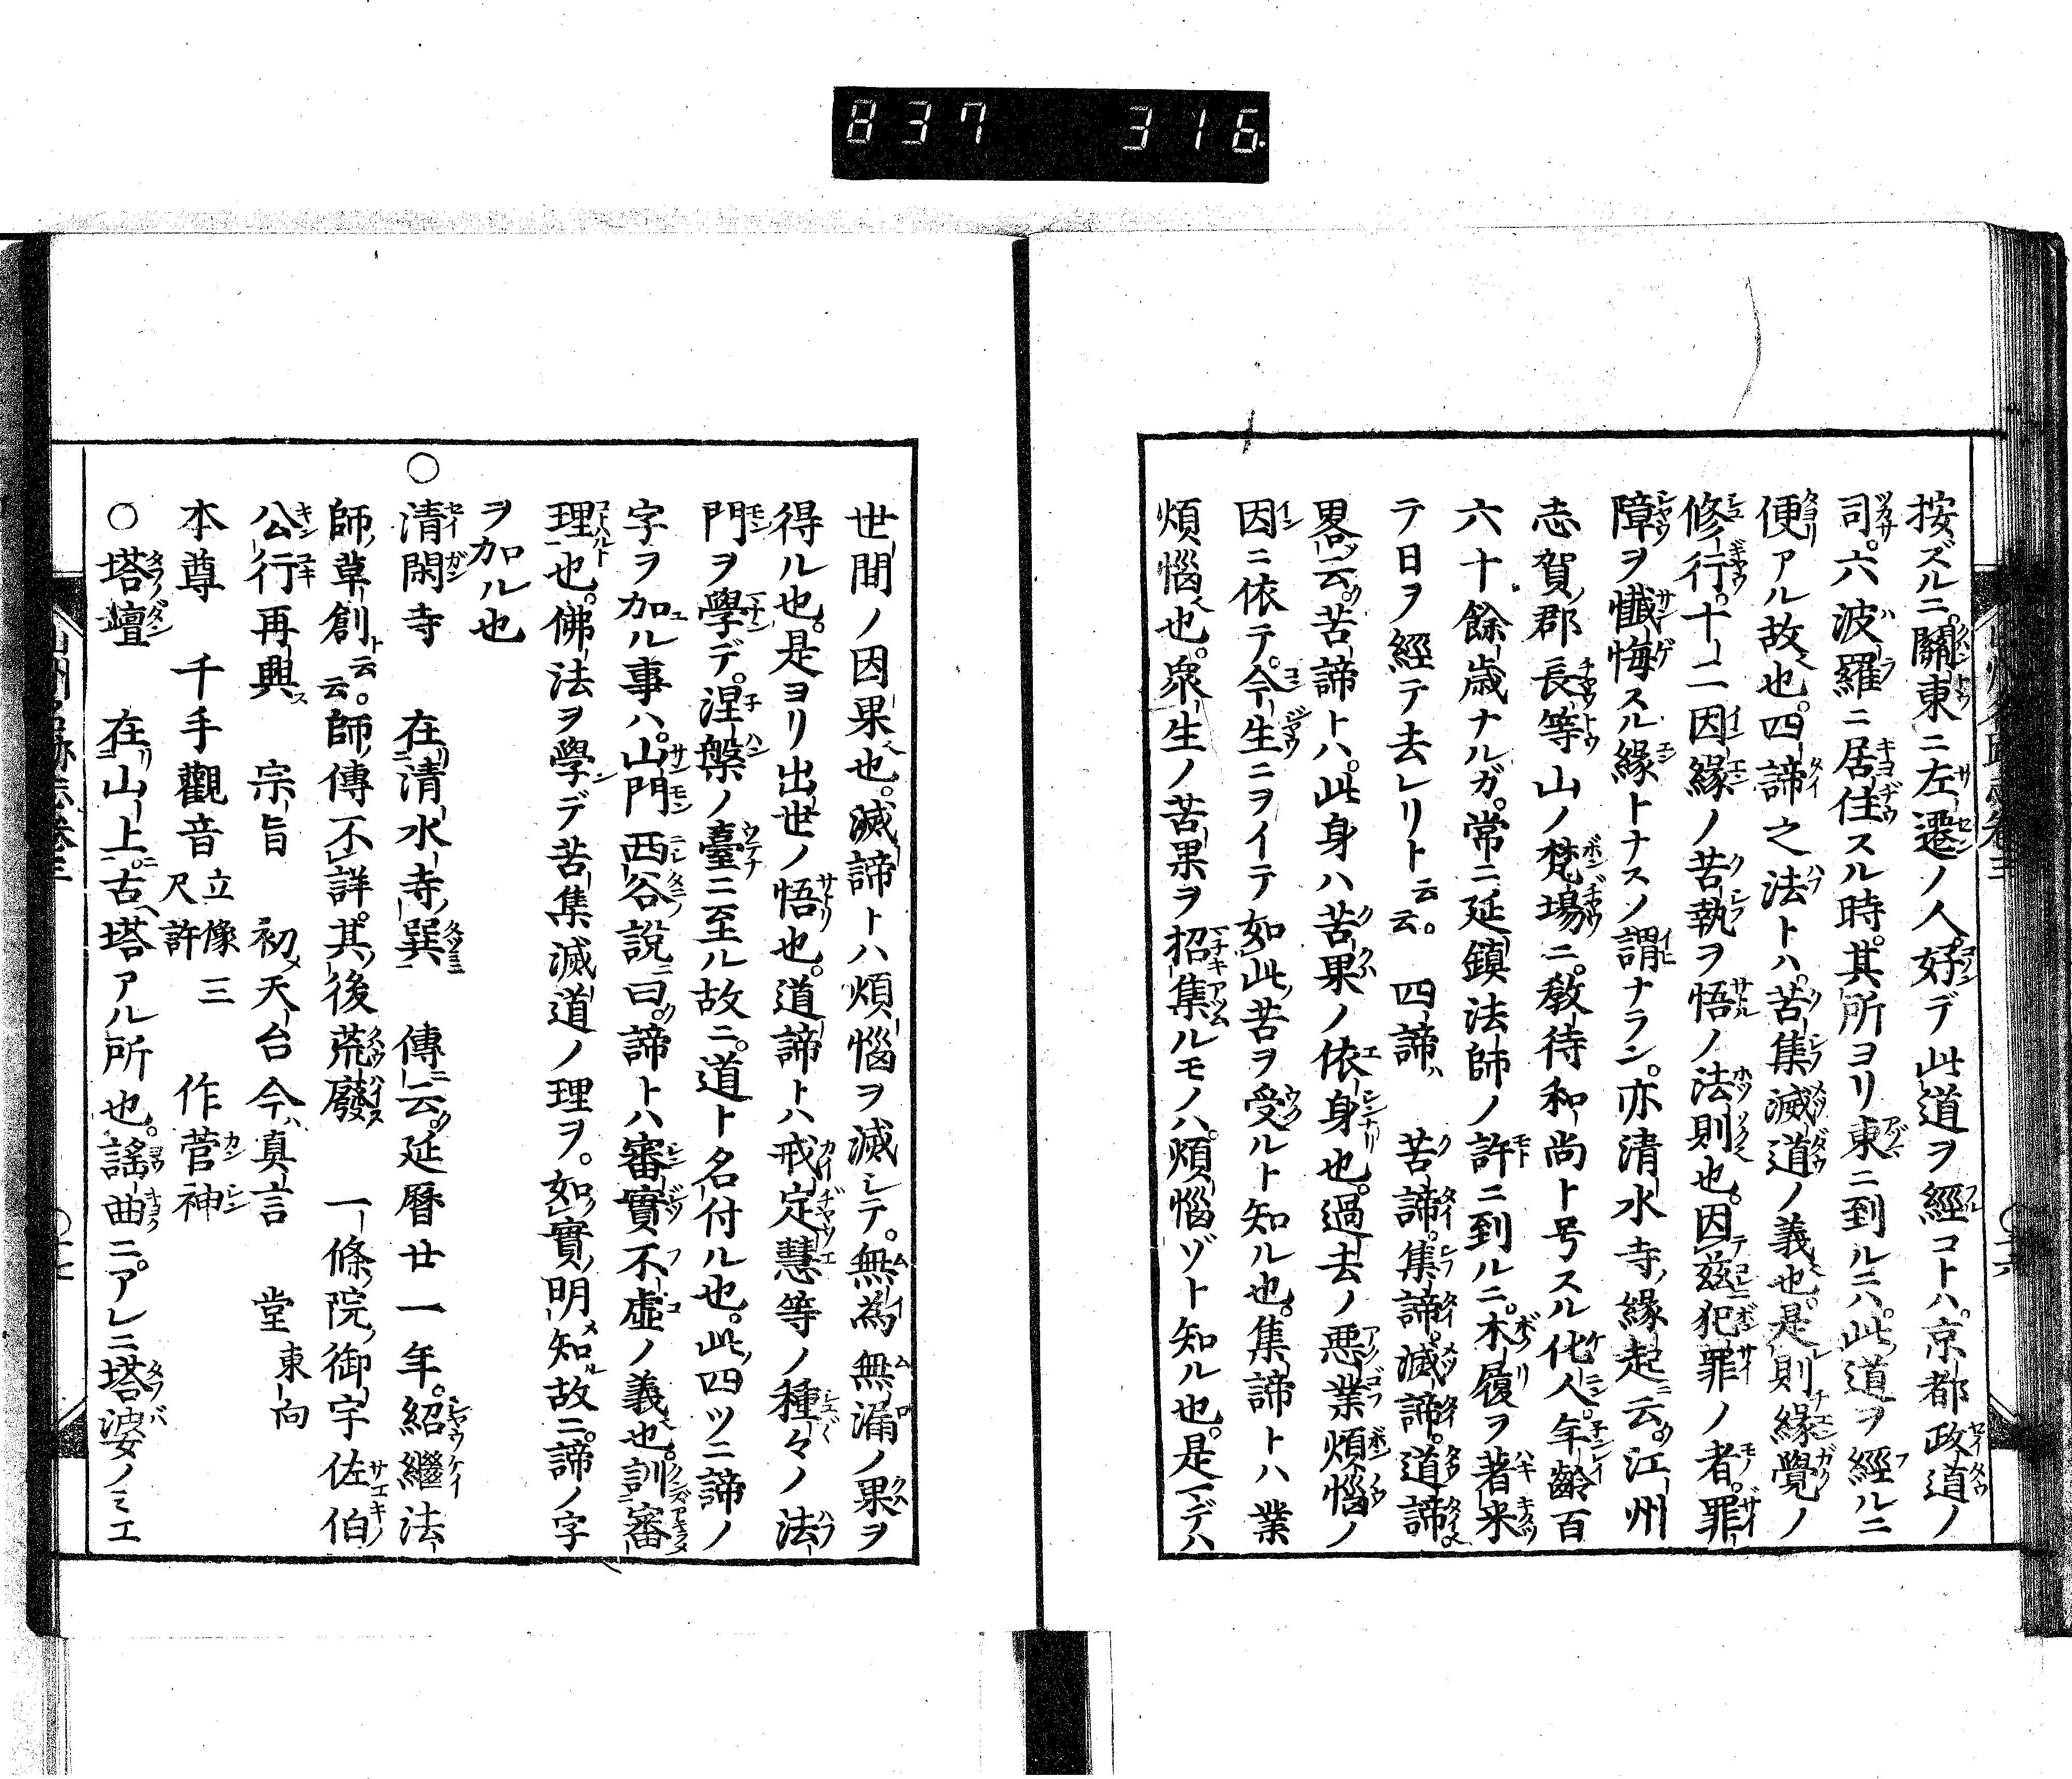 837 316
按ズルニ。關東ニ左遷ノ人。好デ此道ヲ經コトハ。京都政道ノ
司。六波羅ニ居住スル時。其所ヨリ東ニ到ルニハ。此道ヲ經ルニ
便アル故也。四諦之法トハ。苦集滅道ノ義也。是則緣覺ノ
修行。十二因緣ノ苦執ヲ悟ノ法則也。因茲犯罪ノ者。罪
障ヲ懺悔スル緣トナスノ謂ナラン。亦清水寺緣起云。江州
志賀郡長等山ノ梵場ニ。敎待和尚ト号スル化人。年齡百
六十餘歲ナルガ。常ニ延鎮法師ノ許ニ到ルニ。木履ヲ著来
テ日ヲ經テ去レリト云云。 四諦ハ 苦諦。集諦。滅諦。道諦
畧云。苦諦トハ。此身ハ苦果ノ依身也。過去ノ悪業煩惱ノ
因ニ依テ。今生ニヲイテ如此苦ヲ受ルト知ル也。集諦トハ業
煩惱也。衆生ノ苦果ヲ招集ルモノハ。煩惱ゾト知ル也。是マデハ
世間ノ因果也。滅諦トハ煩惱ヲ滅シテ。無為無漏ノ果ヲ
得ル也。是ヨリ出世ノ悟也。道諦トハ戒定慧等ノ種々ノ法
門ヲ學デ。涅槃ノ臺ニ至ル故ニ。道ト名付ル也。此四ツニ諦ノ
字ヲ加ル事ハ。山門西谷說曰。諦トハ審實不虛ノ義也。訓審
理也。佛法ヲ學デ苦集滅道ノ理ヲ。如實明知故ニ。諦ノ字
ヲ加ル也
○清閑寺 在清水寺巽 傳云。延暦廿一年。紹繼法
師草創ト云云。師傳不詳。其後荒廢 一條院御宇佐伯
公行再興 宗旨 初天台今真言 堂東向
本尊 千手觀音立像三尺許 作菅神
○塔壇 在山上。古塔アル所也。謠曲ニアレニ塔婆ノミエ